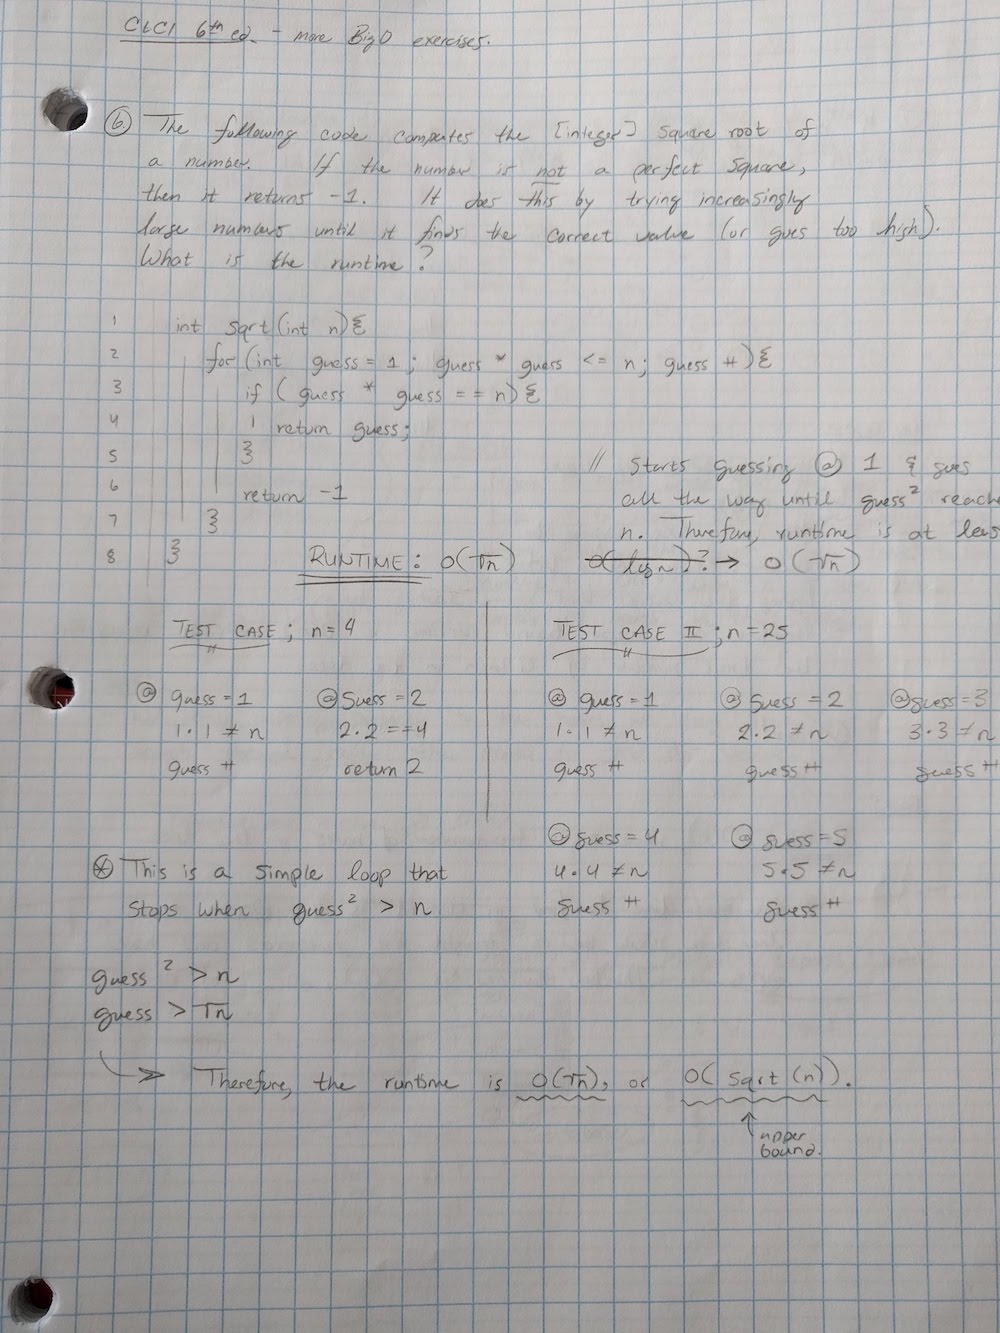 CtCI 6th ed. - more BigO exercises.
6. The following code computes the [integer] square root of
a number. If the number is not a perfect square,
then it returns -1. It does this by trying increasingly
large numbers until it finds the correct value (or goes too high).
What is the runtime?
1 int sqrt(int n){
2 for (int guess = 1; guess * guess <= n; guess ++){
3 if ( guess * guess == n){
4 return guess;
5 }
6 return -1
7 }
8 }
// Starts guessing @ 1 & goes
all the way until guess² reach
n. Therefore, runtime is at leas
O(log n)? → O(√n)
RUNTIME: O(√n)
TEST CASE; n=4
@ guess = 1 @ guess = 2
1·1 ≠ n 2·2 == 4
guess ++ return 2
TEST CASE II; n=25
@ guess = 1 @ guess = 2 @ guess = 3
1·1 ≠ n 2·2 ≠ n 3·3 ≠ n
guess ++ guess ++ guess ++
@ guess = 4 @ guess = 5
4·4 ≠ n 5·5 ≠ n
guess ++ guess ++
* This is a simple loop that
stops when guess² > n
guess² > n
guess > √n
→ Therefore, the runtime is O(√n), or O( sqrt (n)).
↑ upper
bound.